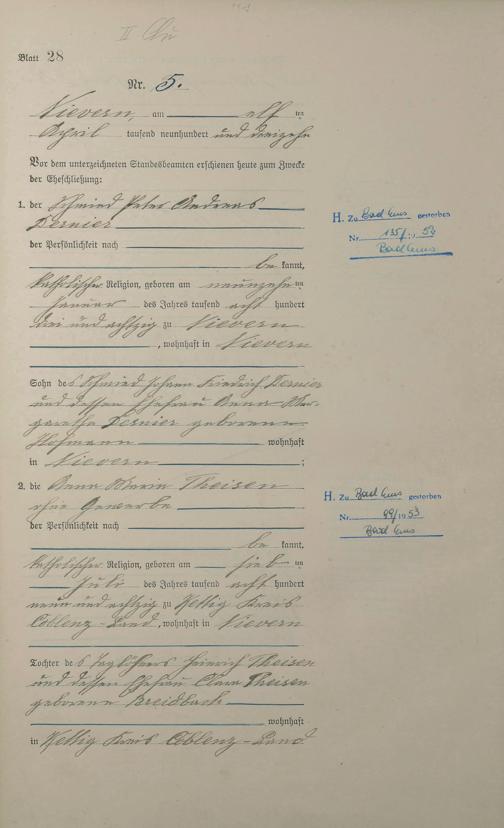 Blatt 28
Nr. 5.
Nievern, am elf ten
April tausend neunhundert und dreizehn
Vor dem unterzeichneten Standesbeamten erschienen heute zum Zwecke
der Eheschließung:
1. der Schmied Peter Andreas
Dernier
der Persönlichkeit nach
be kannt,
katholischer Religion, geboren am neunzehn ten
Januar des Jahres tausend acht hundert
drei und achtzig zu Nievern
, wohnhaft in Nievern
Sohn des Schmied Johann Friedrich Dernier
und dessen Ehefrau Anna Mar-
garetha Dernier geborene
Hofmann wohnhaft
in Nievern ;
2. die Anna Maria Theisen
ohne Gewerbe
der Persönlichkeit nach
be kannt,
katholischer Religion, geboren am sieb ten
Juli des Jahres tausend acht hundert
neun und achtzig zu Kettig Kreis
Coblenz-Land, wohnhaft in Nievern
Tochter des Taglöhners Heinrich Theisen
und dessen Ehefrau Clara Theisen
geborene Breidbach
wohnhaft
in Kettig Kreis Coblenz-Land
H. Zu Bad Ems gestorben
Nr. 135/ 53
Bad Ems
H. Zu Bad Ems gestorben
Nr. 99/1953
Bad Ems